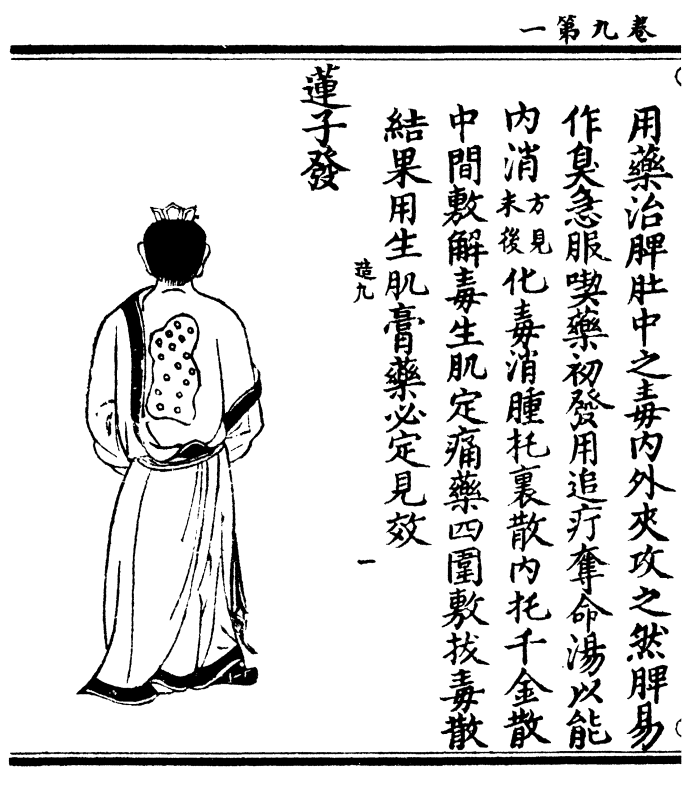 卷九第一
用藥治脾肚中之毒內外夾攻之然脾易
作臭急服喫藥初發用追疔奪命湯以能
內消方見末後化毒消腫托裏散內托千金散
中間敷解毒生肌定痛藥四圍敷拔毒散
結果用生肌膏藥必定見效
造九
一
蓮子發